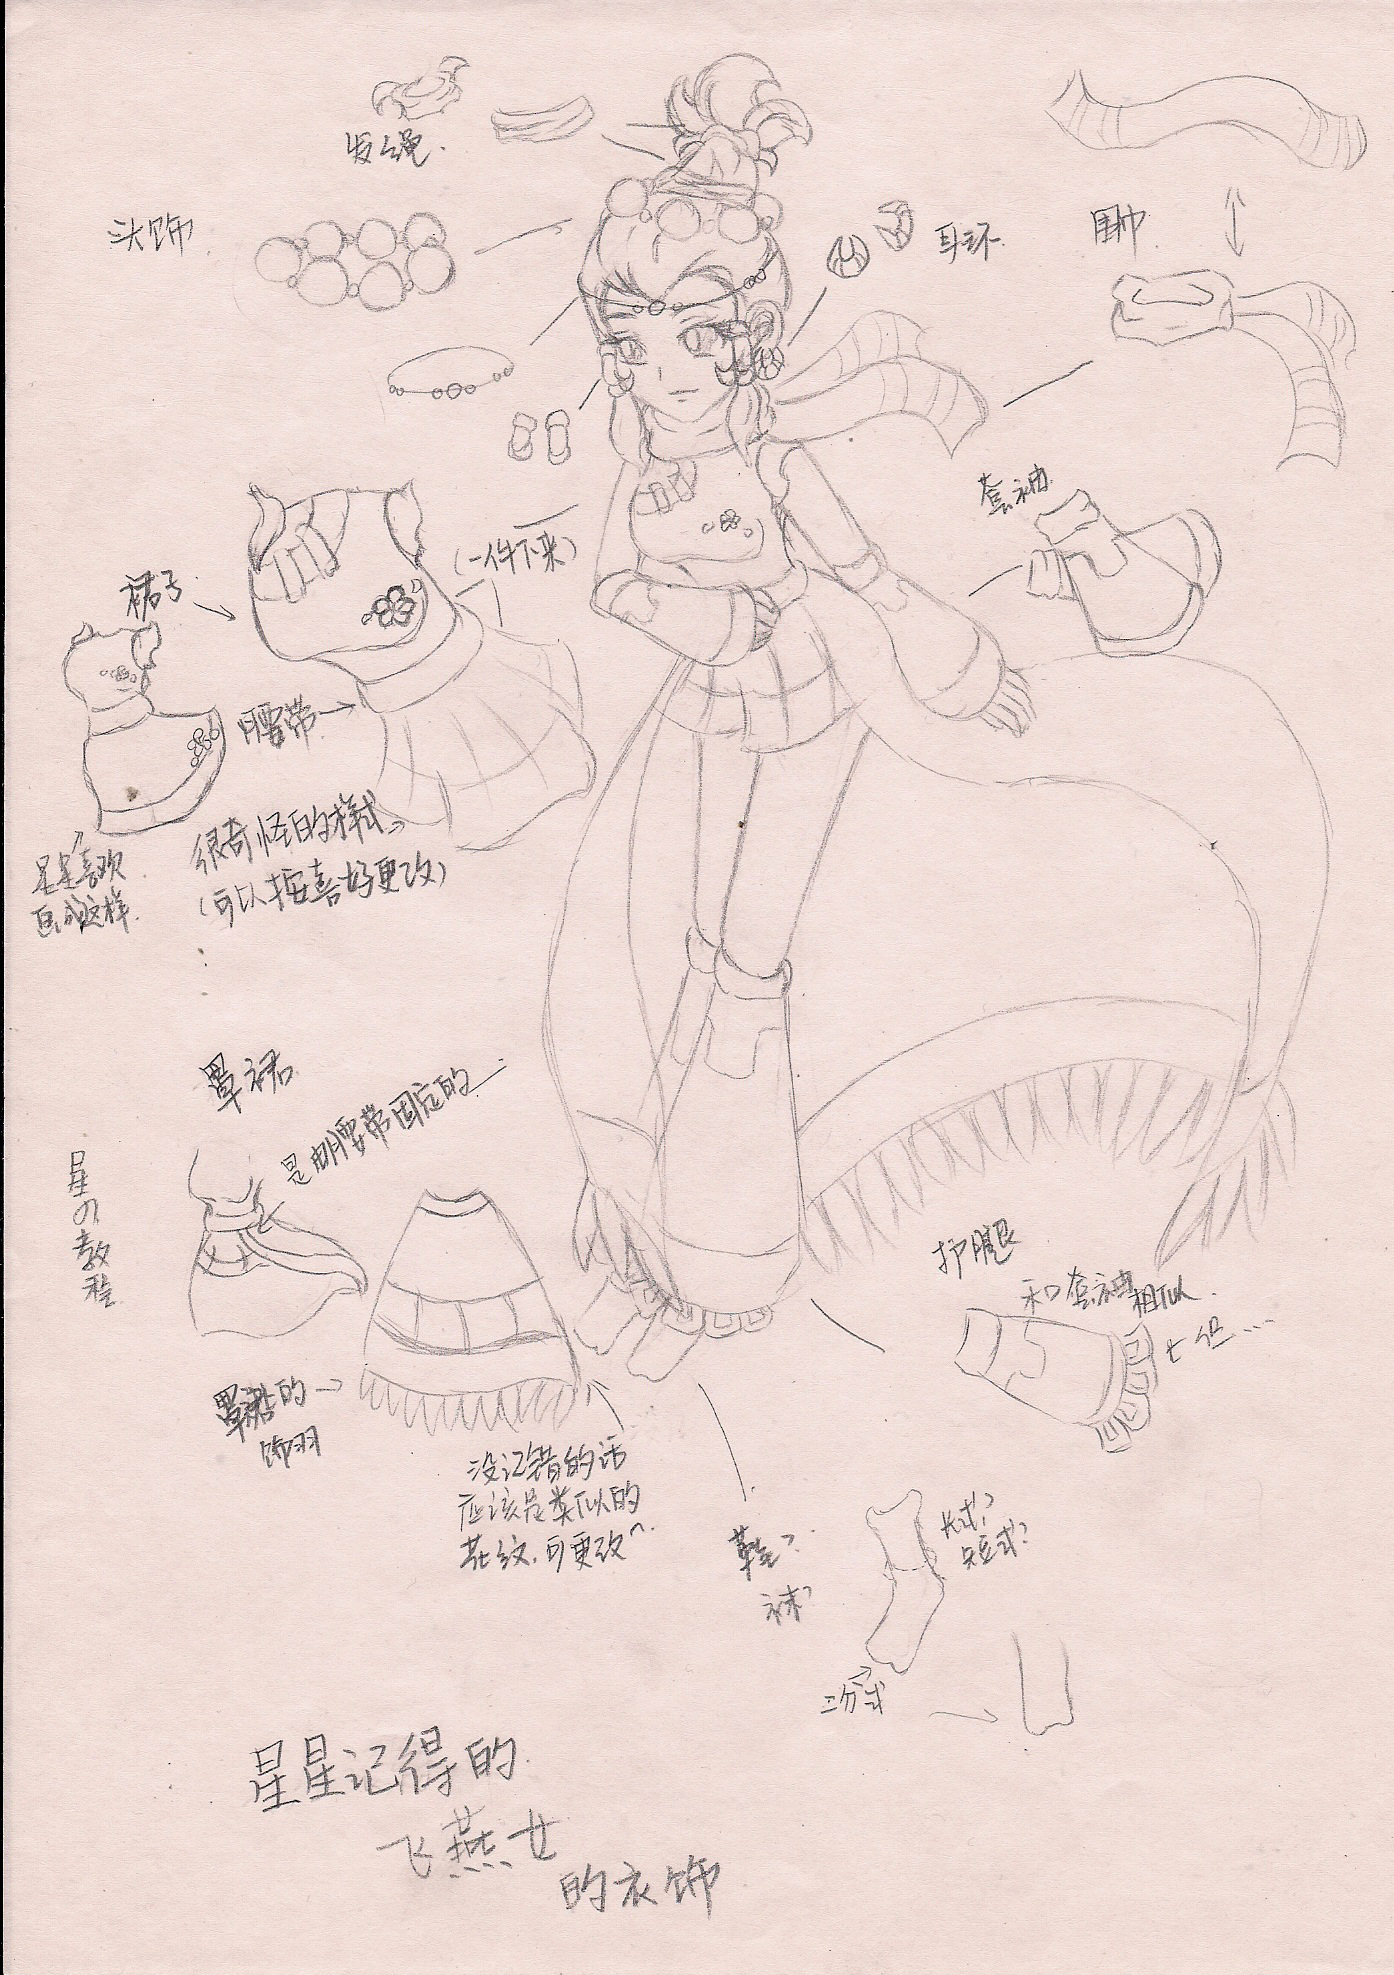 发绳.
头饰
耳环.
围巾.
套袖.
(一件下来)
裙子
腰带
很奇怪的样式
(可以按喜好更改)
星星喜欢
画成这样.
罩裙
是由腰带固定的
星の教程
罩裙的
饰羽
没记错的话
应该是类似的
花纹.可更改^.
护腿
和套袖相似.
但…
鞋?
袜?
长式?
短式?
二分式
星星记得的
飞燕女
的衣饰